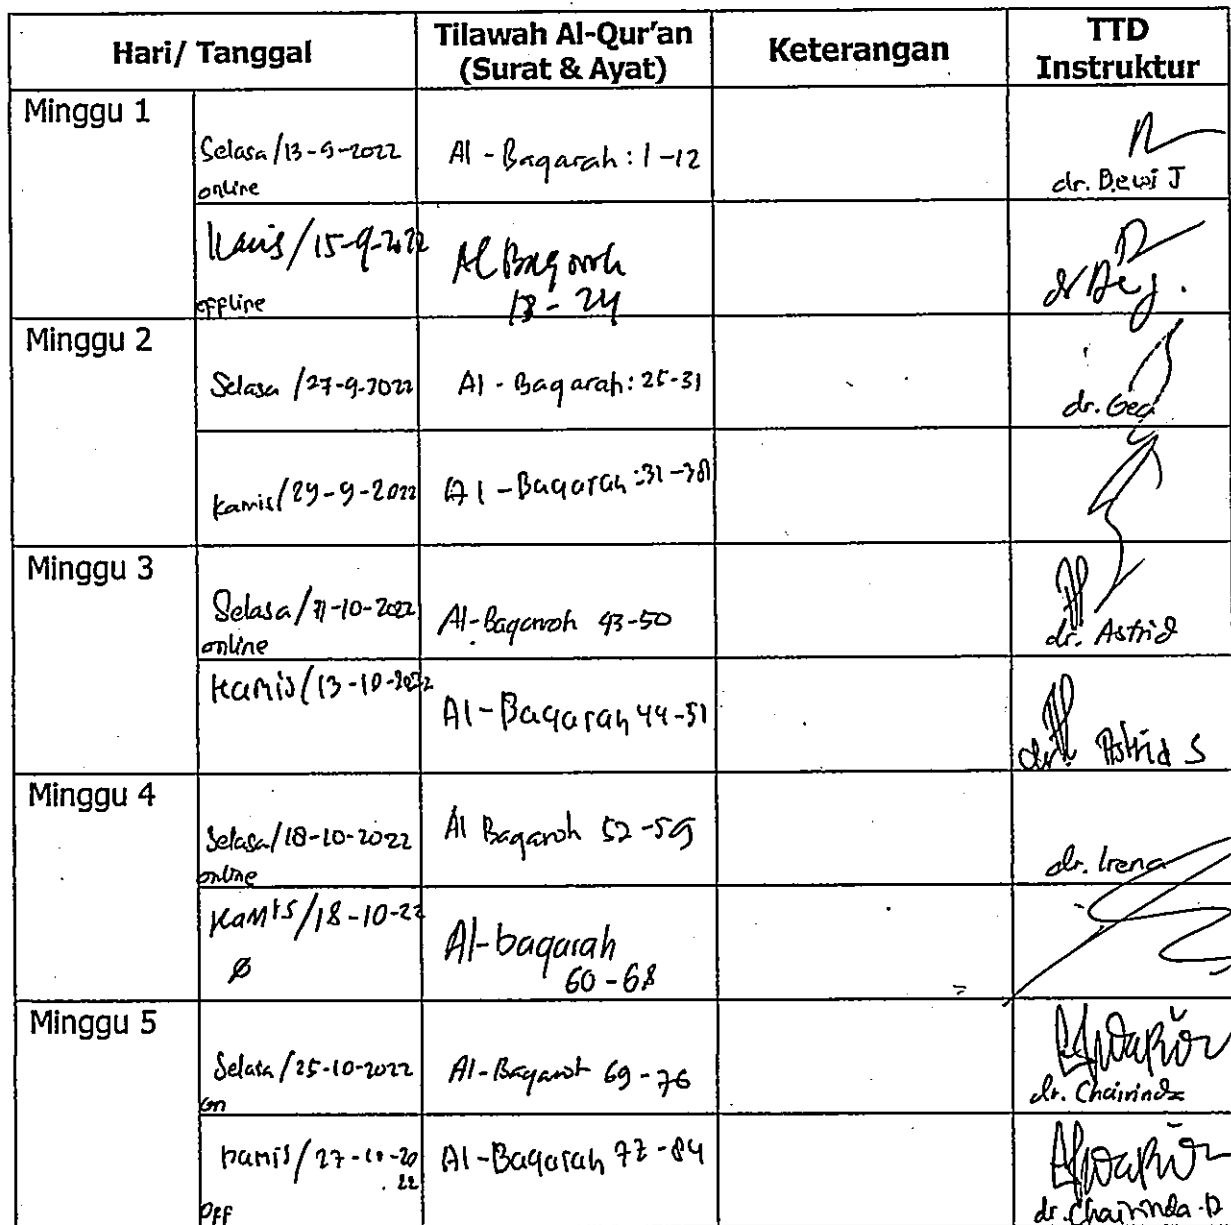 Hari/ Tanggal
Tilawah Al-Qur'an
(Surat & Ayat)
Keterangan
TTD
Instruktur
Minggu 1
Selasa/13-9-2022
online
Al-Baqarah: 1-12
dr. Dewi J
Kamis/15-9-2022
offline
Al Baqoroh
13-24
Minggu 2
Selasa/27-9-2022
Al-Baqarah: 25-31
dr. Gea
Kamis/29-9-2022
Al-Baqarah: 31-38
Minggu 3
Selasa/11-10-2022
online
Al-Baqoroh 43-50
dr. Astrid
Kamis/13-10-2022
Al-Baqarah 44-51
dr. Astrid S
Minggu 4
Selasa/18-10-2022
online
Al Baqaroh 52-59
dr. Irena
Kamis/18-10-22
Al-baqarah
60-68
Minggu 5
Selasa/25-10-2022
on
Al-Baqaroh 69-76
dr. Chairinda
Kamis/27-10-20
22
Off
Al-Baqarah 77-84
dr. Chairinda.D